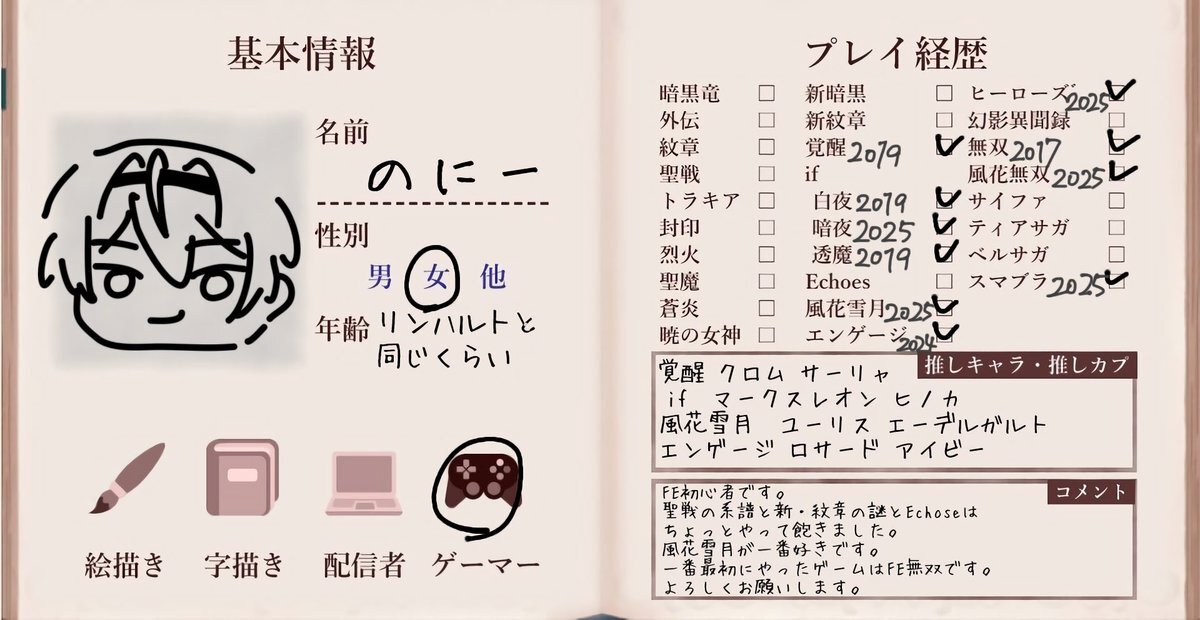 基本情報
名前
のにー
性別
男 女 他
年齢 リンハルトと
同じくらい
絵描き 字描き 配信者 ゲーマー
プレイ経歴
暗黒竜 □ 新暗黒 □ ヒーローズ 2025 ✓
外伝 □ 新紋章 □ 幻影異聞録 □
紋章 □ 覚醒 2019 ✓ 無双 2017 ✓
聖戦 □ if 風花無双 2025 ✓
トラキア □ 白夜 2019 ✓ サイファ □
封印 □ 暗夜 2025 ✓ ティアサガ □
烈火 □ 透魔 2019 ✓ ベルサガ □
聖魔 □ Echoes □ スマブラ 2025 ✓
蒼炎 □ 風花雪月 2025 ✓
暁の女神 □ エンゲージ 2024 ✓
推しキャラ・推しカプ
覚醒 クロム サーリャ
if マークスレオン ヒノカ
風花雪月 ユーリス エーデルガルト
エンゲージ ロサード アイビー
コメント
FE初心者です。
聖戦の系譜と新・紋章の謎とEchoseは
ちょっとやって飽きました。
風花雪月が一番好きです。
一番最初にやったゲームはFE無双です。
よろしくお願いします。